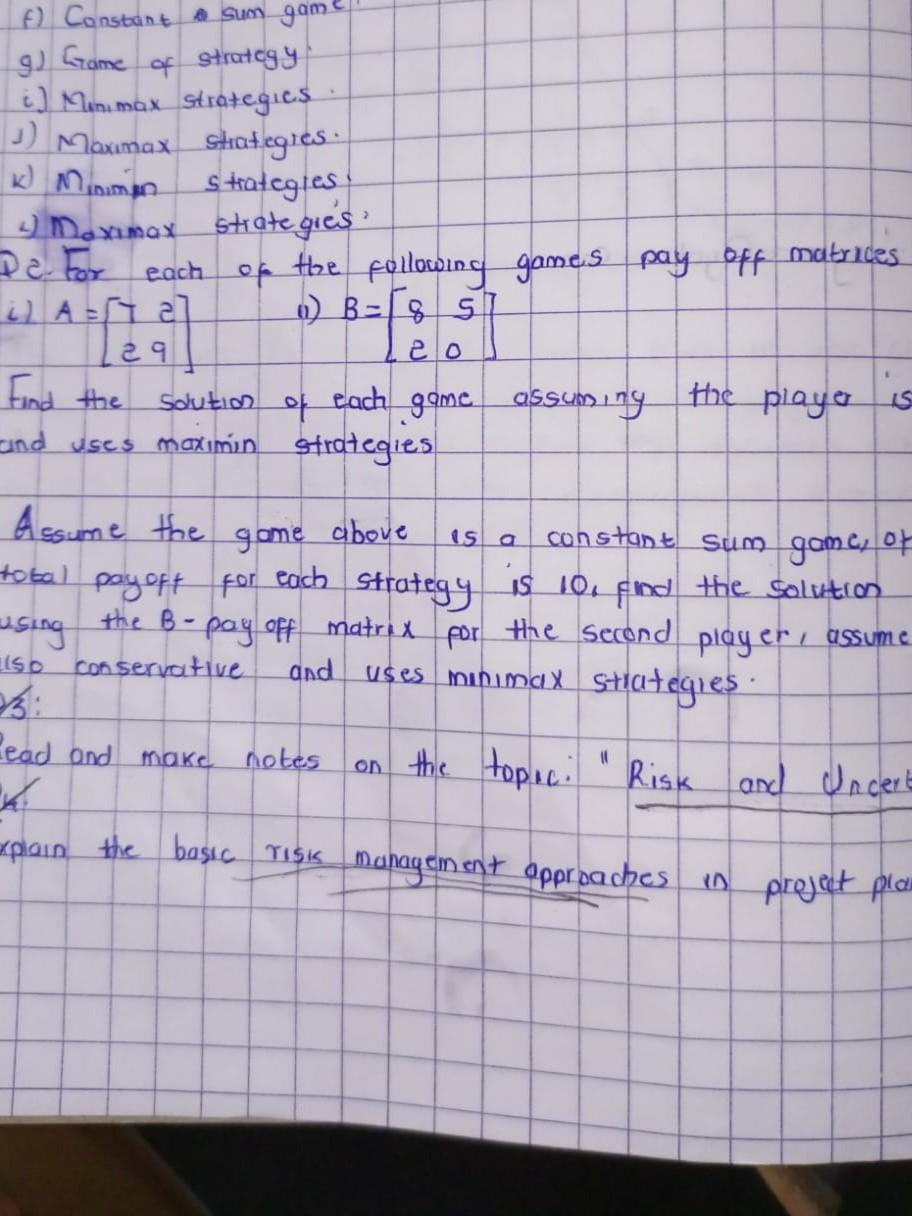 f) Constant sum game
g) Game of strategy
i) Minimax strategies.
J) Maximax strategies.
K) Minimin strategies
L) Maximax strategies.
Q2. For each of the following games pay off matrices
i) A = [7 2] ii) B = [8 5]
[2 9] [2 0]
Find the solution of each game assuming the player is
and uses maximin strategies
Assume the game above is a constant sum game, of
total payoff for each strategy is 10, find the solution
using the B-pay off matrix for the second player, assume
also conservative and uses minimax strategies.
3:
Read and make notes on the topic: "Risk and Uncert
Explain the basic risk management approaches in project plan